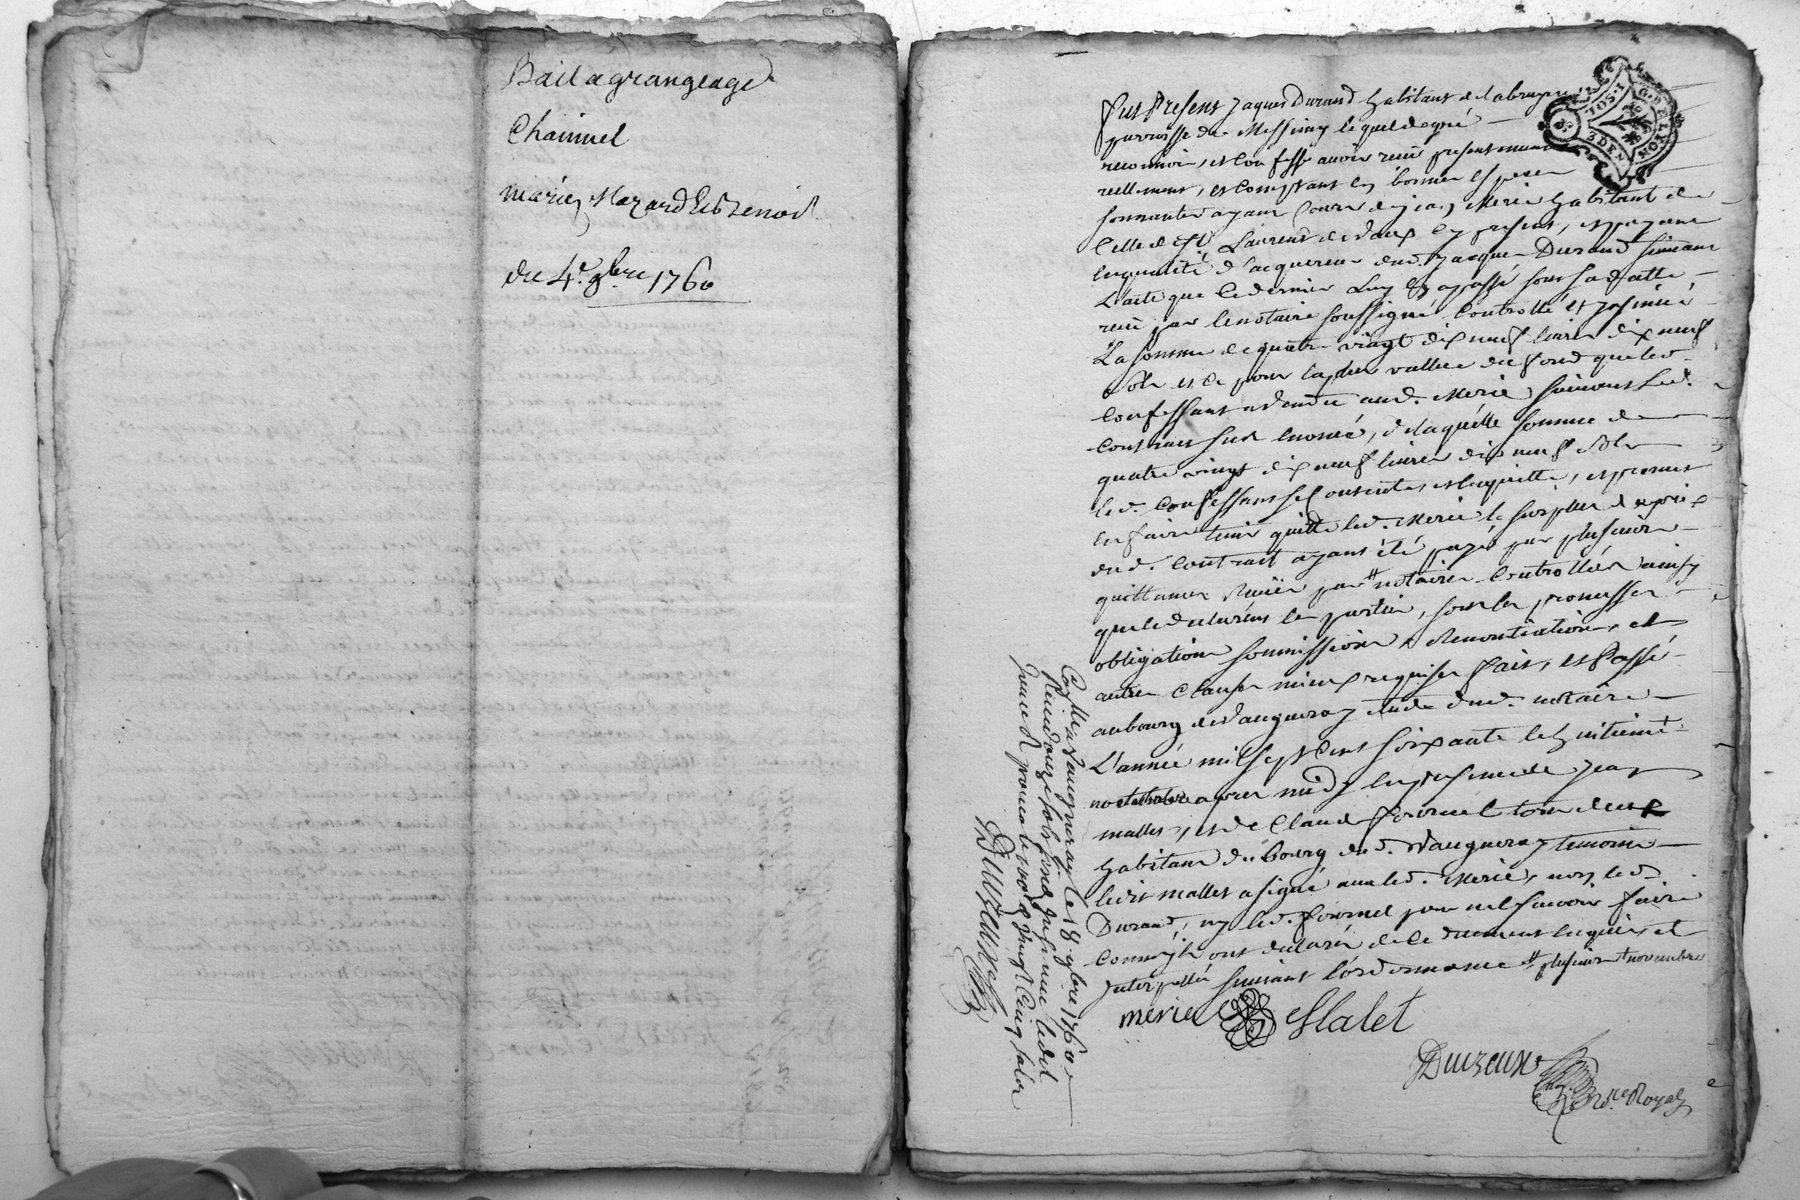 Bail a grangeage
Chainuel
mérieu, Mazard & Benoit
du 4.e 9bre 1760
Fut Present Jaques Durand habitant de labruyere
parroisse de Messimy lequel de gré
reconnoit, et Confesse avoir reçu presentement
reellement, et Comptant en bonnes especes
sonnantes ayant Cours de jean Merie habitant de
Celle de St Laurent de Vaux cy present, et payant
en qualité d'acquereur dud. Jacques Durand suivant
L'acte que Ce dernier Luy en a passé sous sa datte
reçu par le notaire soussigné Controllé et insinué
La somme de quatre vingt dix neuf livres dix neuf
sols et ce pour la plus vallue du fond que led.
Confessant a vendu aud. Merie suivant Led.
Contrat sus enoncé, de laquelle somme de
quatre vingt dix neuf livres dix neuf sols
led. Confessant se Contente, et l'en quitte, et promet
en faire tenir quitte led. Merie le surplus du prix
dud. Contrat ayant été payé par plusieurs
quittances reçues par # notaires Controllées ainsy
que le declarent les parties, sous les promesses
obligations soumissions, & Renontiations, et
autres Clauses mieux requises fait, et Passé
au bourg de Vaugneray etude dud. notaire
L'année mil sept Cent soixante le huitieme
novembre apres midy en presence de Jean
mallet, et de Claude fournel tous deux
habitant du bourg dud. Vaugneray temoins
ledit mallet a signé avec led. Merie, non led.
Durand, ny led. fournel pour ne le sçavoir faire
Comme ils ont declaré de Ce duement enquis et
Interpellés suivant l'ordonnance # plusieurs + novembre
merie Malet
Duizeux
No.re Royal
Con.lé a Vaugneray le 18 9bre 1760
Reçu douze sols
G.D.E LYON
3 DEN